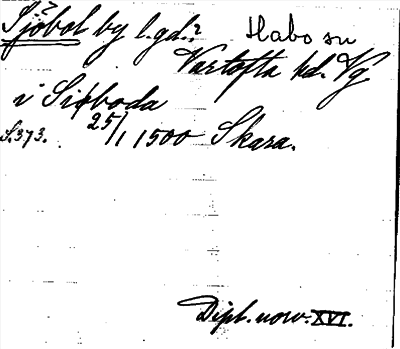 Sjöbol by l. gd.? Habo sn
Vartofta hd. Vg
i Siöboda
S.373. 25/1 1500 Skara.
Dipl. norv. XVI.